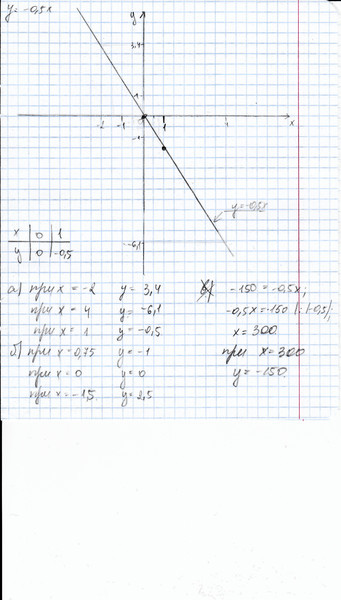 y = -0,5x
y
3,4
1
-2 -1 1 4 x
-1
y=-0,5x
-6,1
x 0 1
y 0 -0,5
а) при x = -2 y = 3,4
при x = 4 y = -6,1
при x = 1 y = -0,5
б) при x = 0,75 y = -1
при x = 0 y = 0
при x = -1,5 y = 2,5
-150 = -0,5x;
-0,5x = -150 |:(-0,5);
x = 300
при x = 300
y = -150